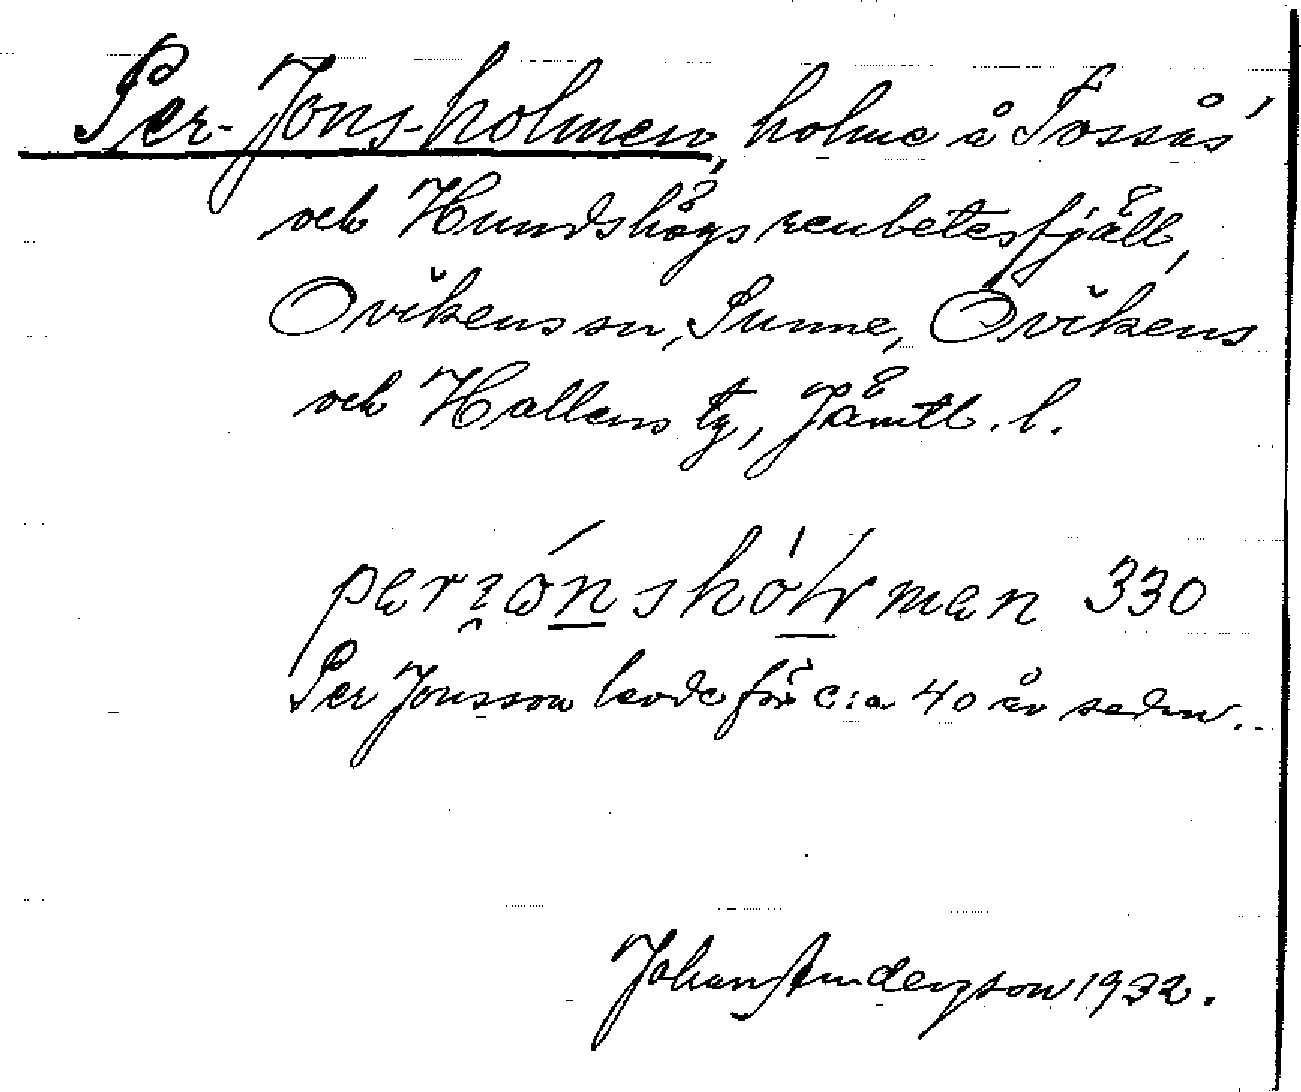 Per-Jons-holmen, holme å Tossås'
och Hundshögs renbetesfjäll,
Ovikens sn, Sunne, Ovikens
och Hallens tg, Jämtl. l.
330
Per Jonsson levde för c:a 40 år sedan.
Johan Anderzson 1932.